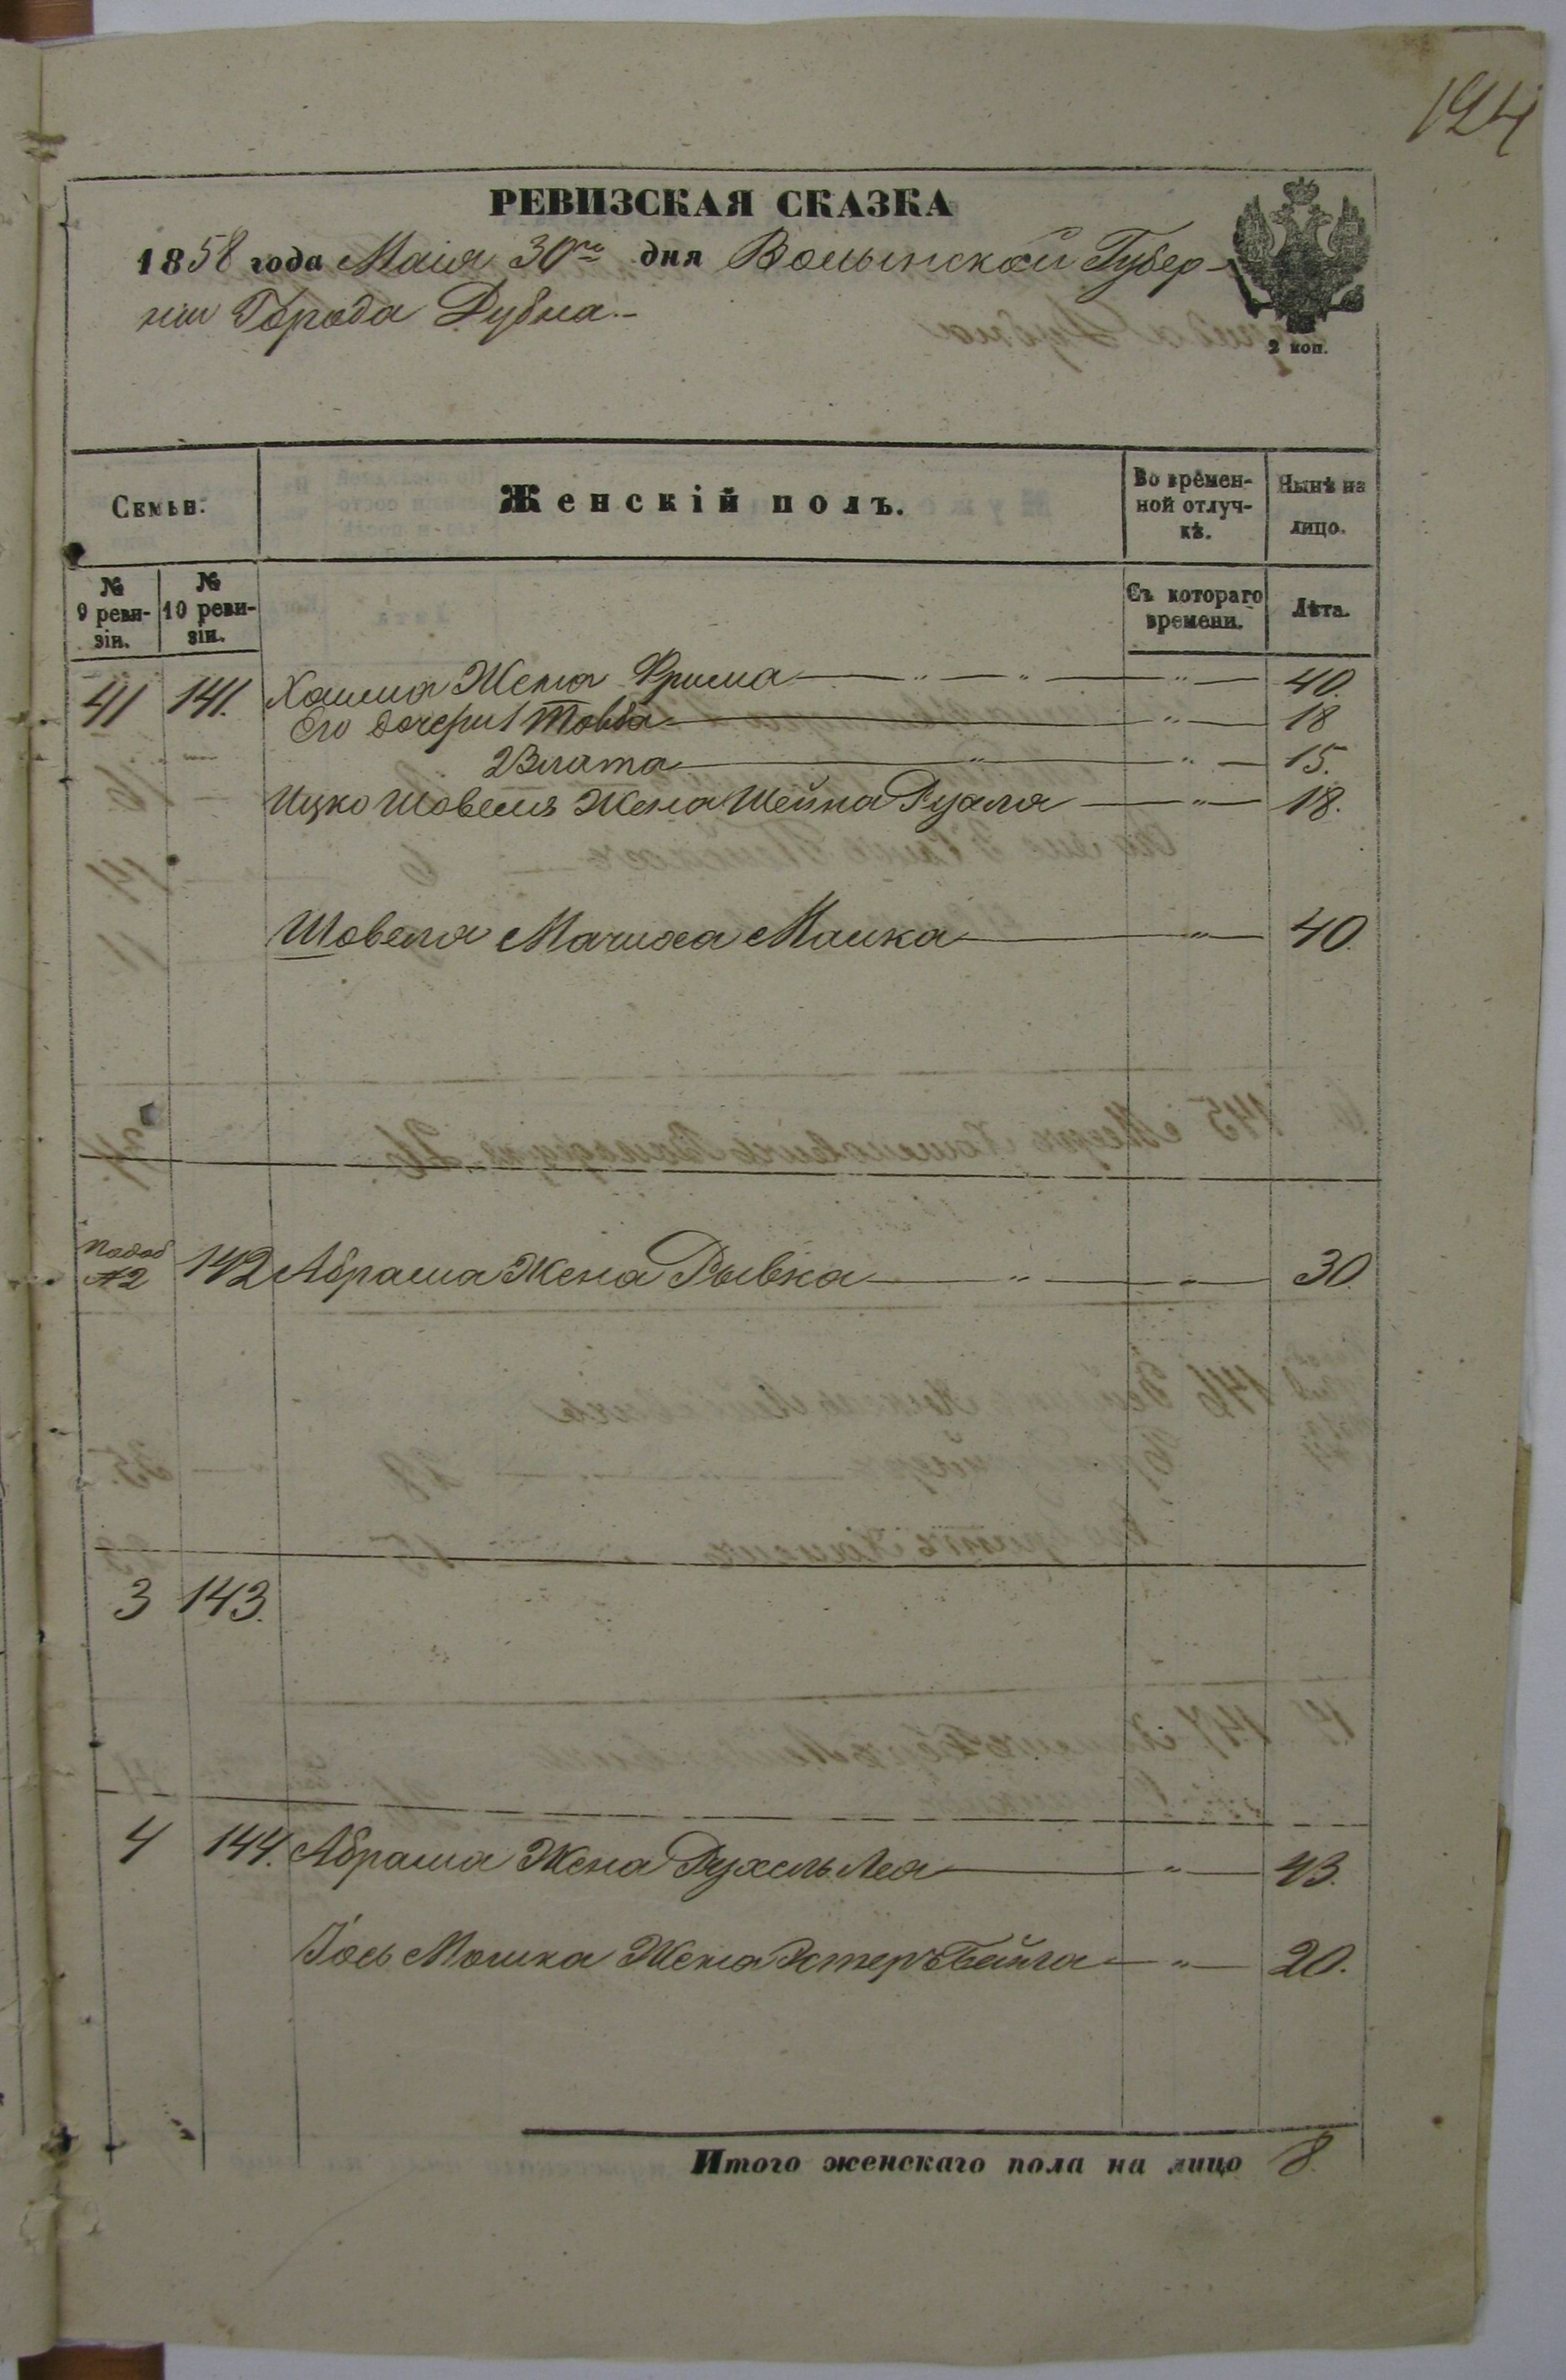 124
РЕВИЗСКАЯ СКАЗКА
1858 года Маія 30го дня Волынской Губер-
ніи Города Дубна.-
2 коп.
Семьи.
Женскій полъ.
Во времен-
ной отлуч-
кѣ.
Нынѣ на
лицо.
№
9 реви-
зіи.
№
10 реви-
зіи.
Съ котораго
времени.
Лѣта.
41 141. Хаима Жена Фрима 40.
Его дочери 1 Товба 18
2 Злата 15.
Ицко Шовеля Жена Шейна Рухля 18.
Шовеля Мачиха Малка 40.
142 Абрама Жена Рывка 30.
3 143.
4 144. Абрама Жена Рухель Леа 43.
Іось Мошка Жена Эстеръ Бейла 20.
Итого женскаго пола на лицо 8.